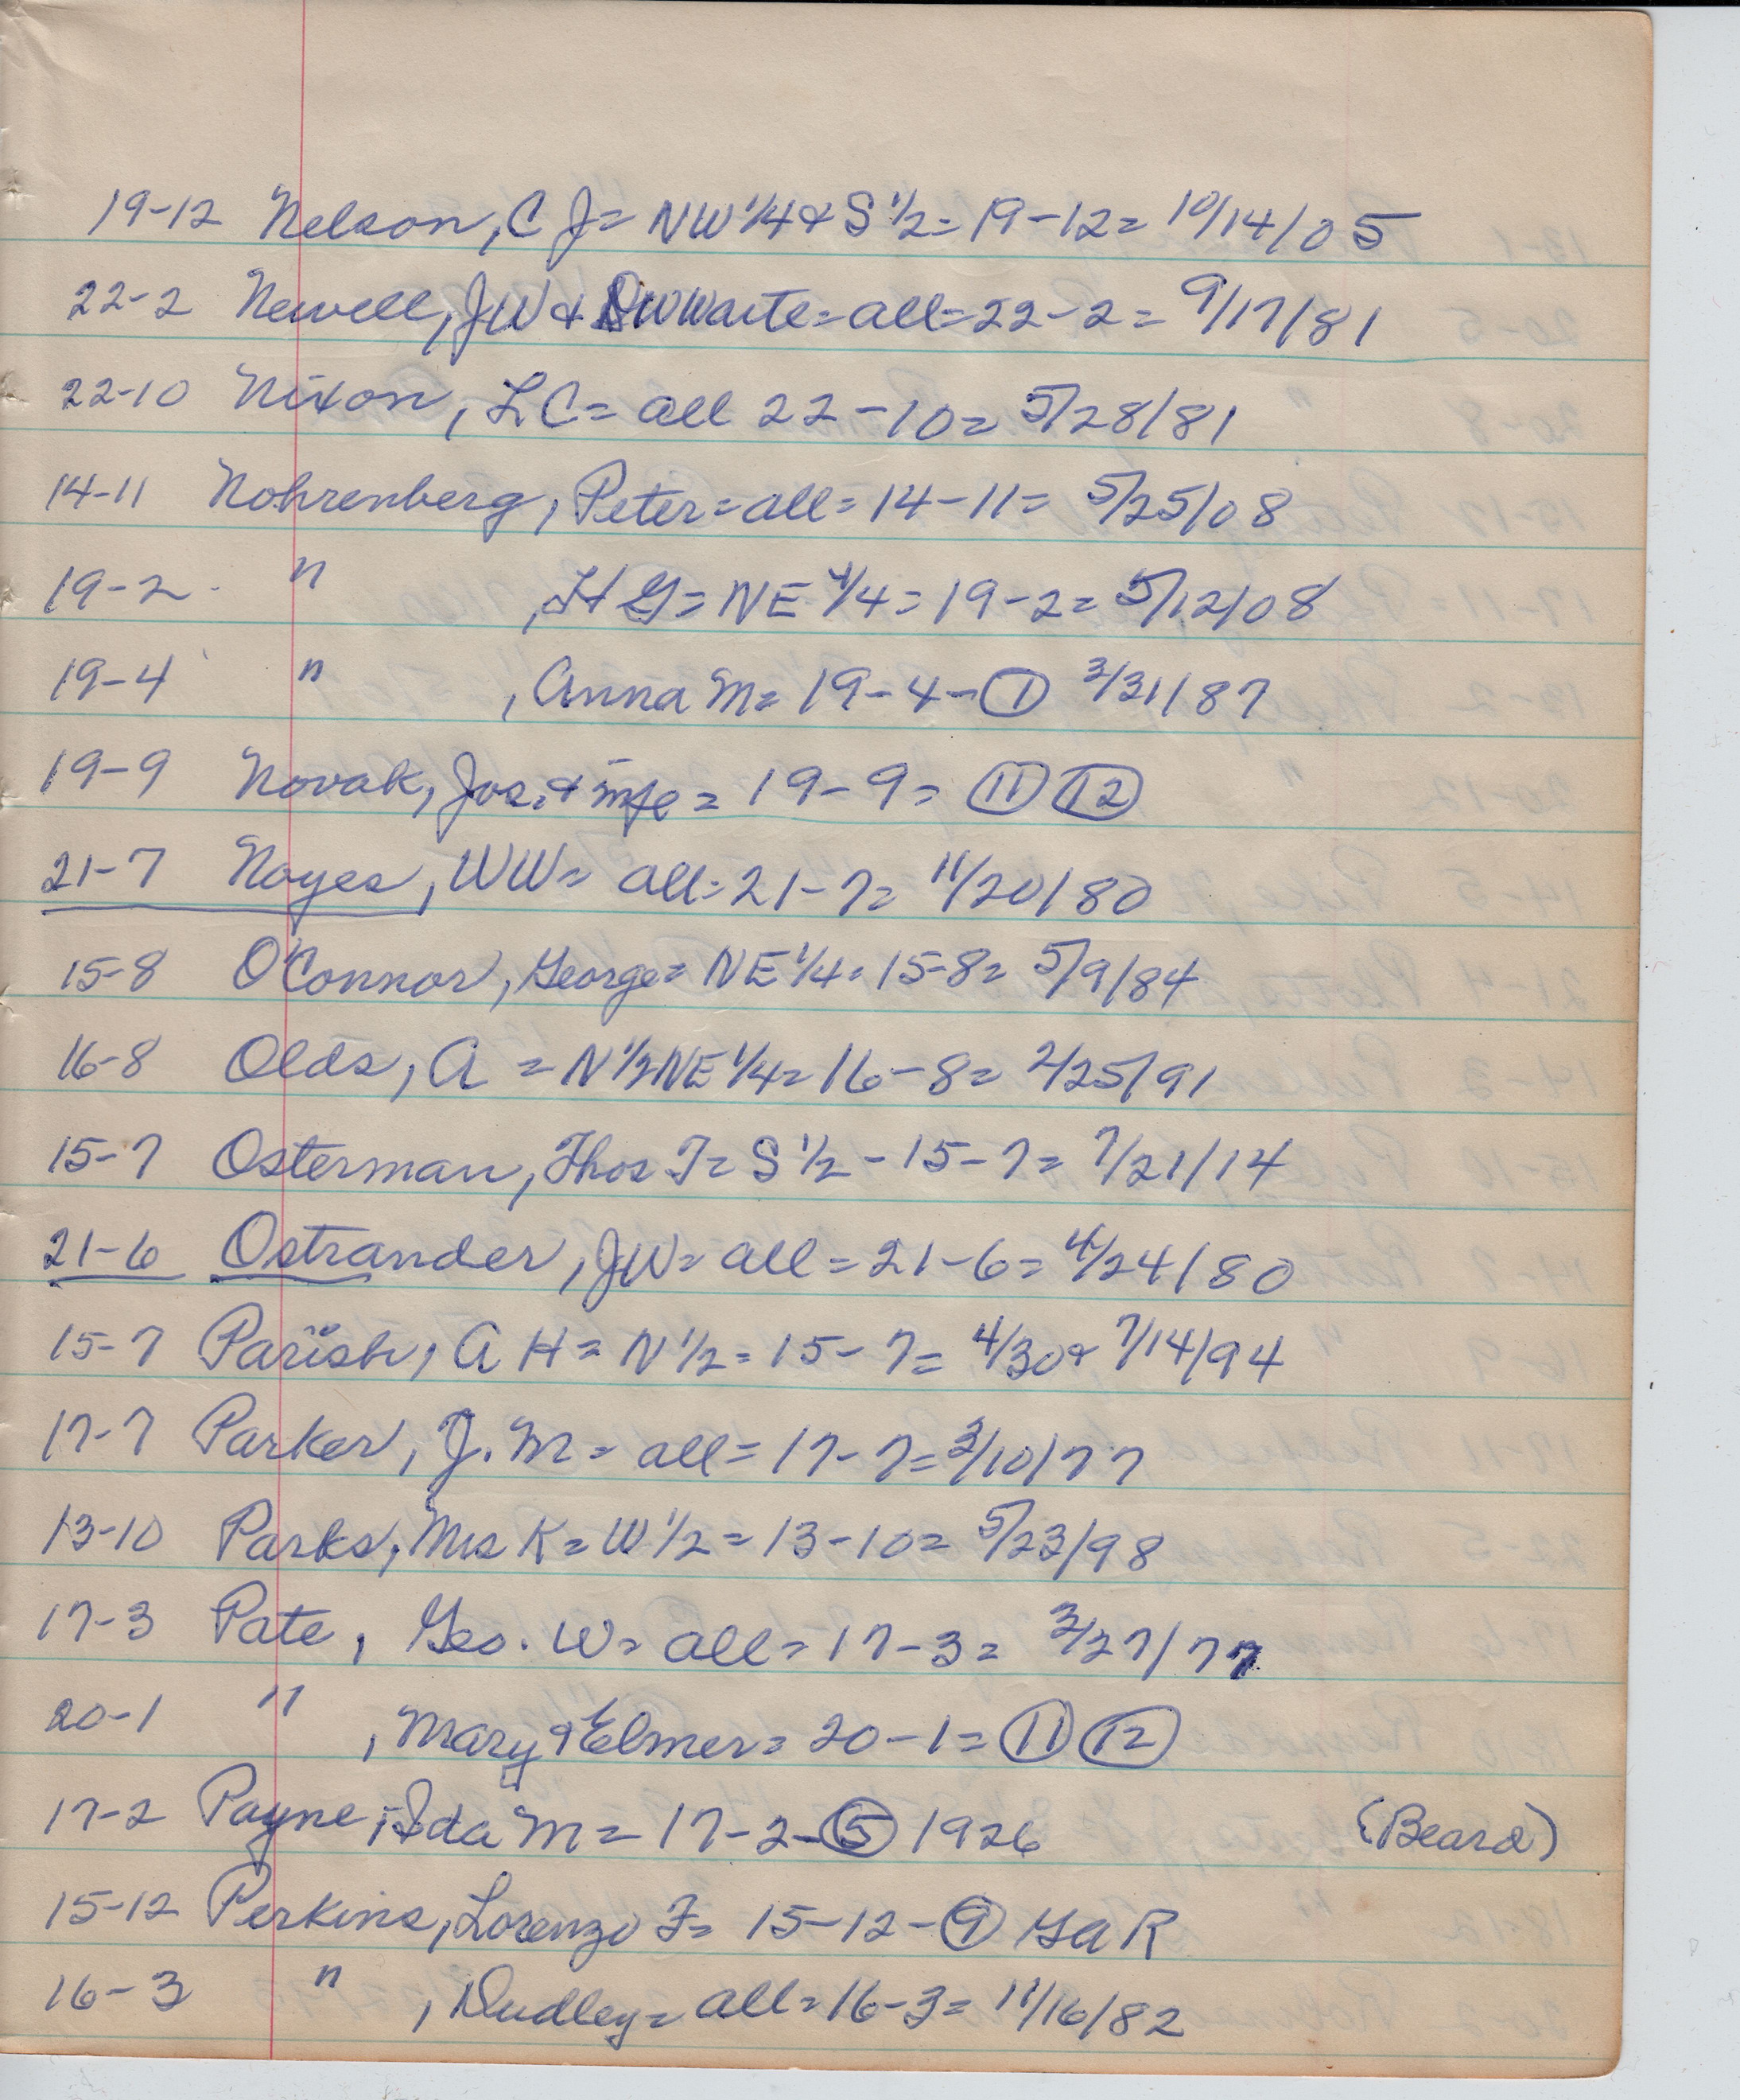 19-12 Nelson, C J= NW 1/4 & S 1/2= 19-12= 10/14/05
22-2 Newell, JW & DW Waite= all= 22-2= 9/17/81
22-10 Nixon, L C= all 22-10= 5/28/81
14-11 Nohrenberg, Peter= all= 14-11= 5/25/08
19-2 " , H G= NE 1/4= 19-2= 5/12/08
19-4 " , Anna M= 19-4-① 3/31/87
19-9 Novak, Jos. & = 19-9= ⑪ ⑫
21-7 Noyes, WW= all= 21-7= 11/20/80
15-8 O'Connor, George= NE 1/4= 15-8= 5/9/84
16-8 Olds, A = N 1/2 NE 1/4= 16-8= 2/25/91
15-7 Osterman, Thos T= S 1/2 - 15-7= 7/21/14
21-6 Ostrander, JW= all= 21-6= 4/24/80
15-7 Parish, A H= N 1/2= 15-7= 4/30 & 7/14/94
17-7 Parker, J. M= all= 17-7= 3/10/77
13-10 Parks, Mrs K= W 1/2= 13-10= 5/23/98
17-3 Pate, Geo. W= all= 17-3= 3/27/77
20-1 " , Mary & Elmer= 20-1= ⑪ ⑫
17-2 Payne, Ida M= 17-2-⑤ 1926 (Beard)
15-12 Perkins, Lorenzo F= 15-12-⑨ GAR
16-3 " , Dudley= all= 16-3= 11/16/82